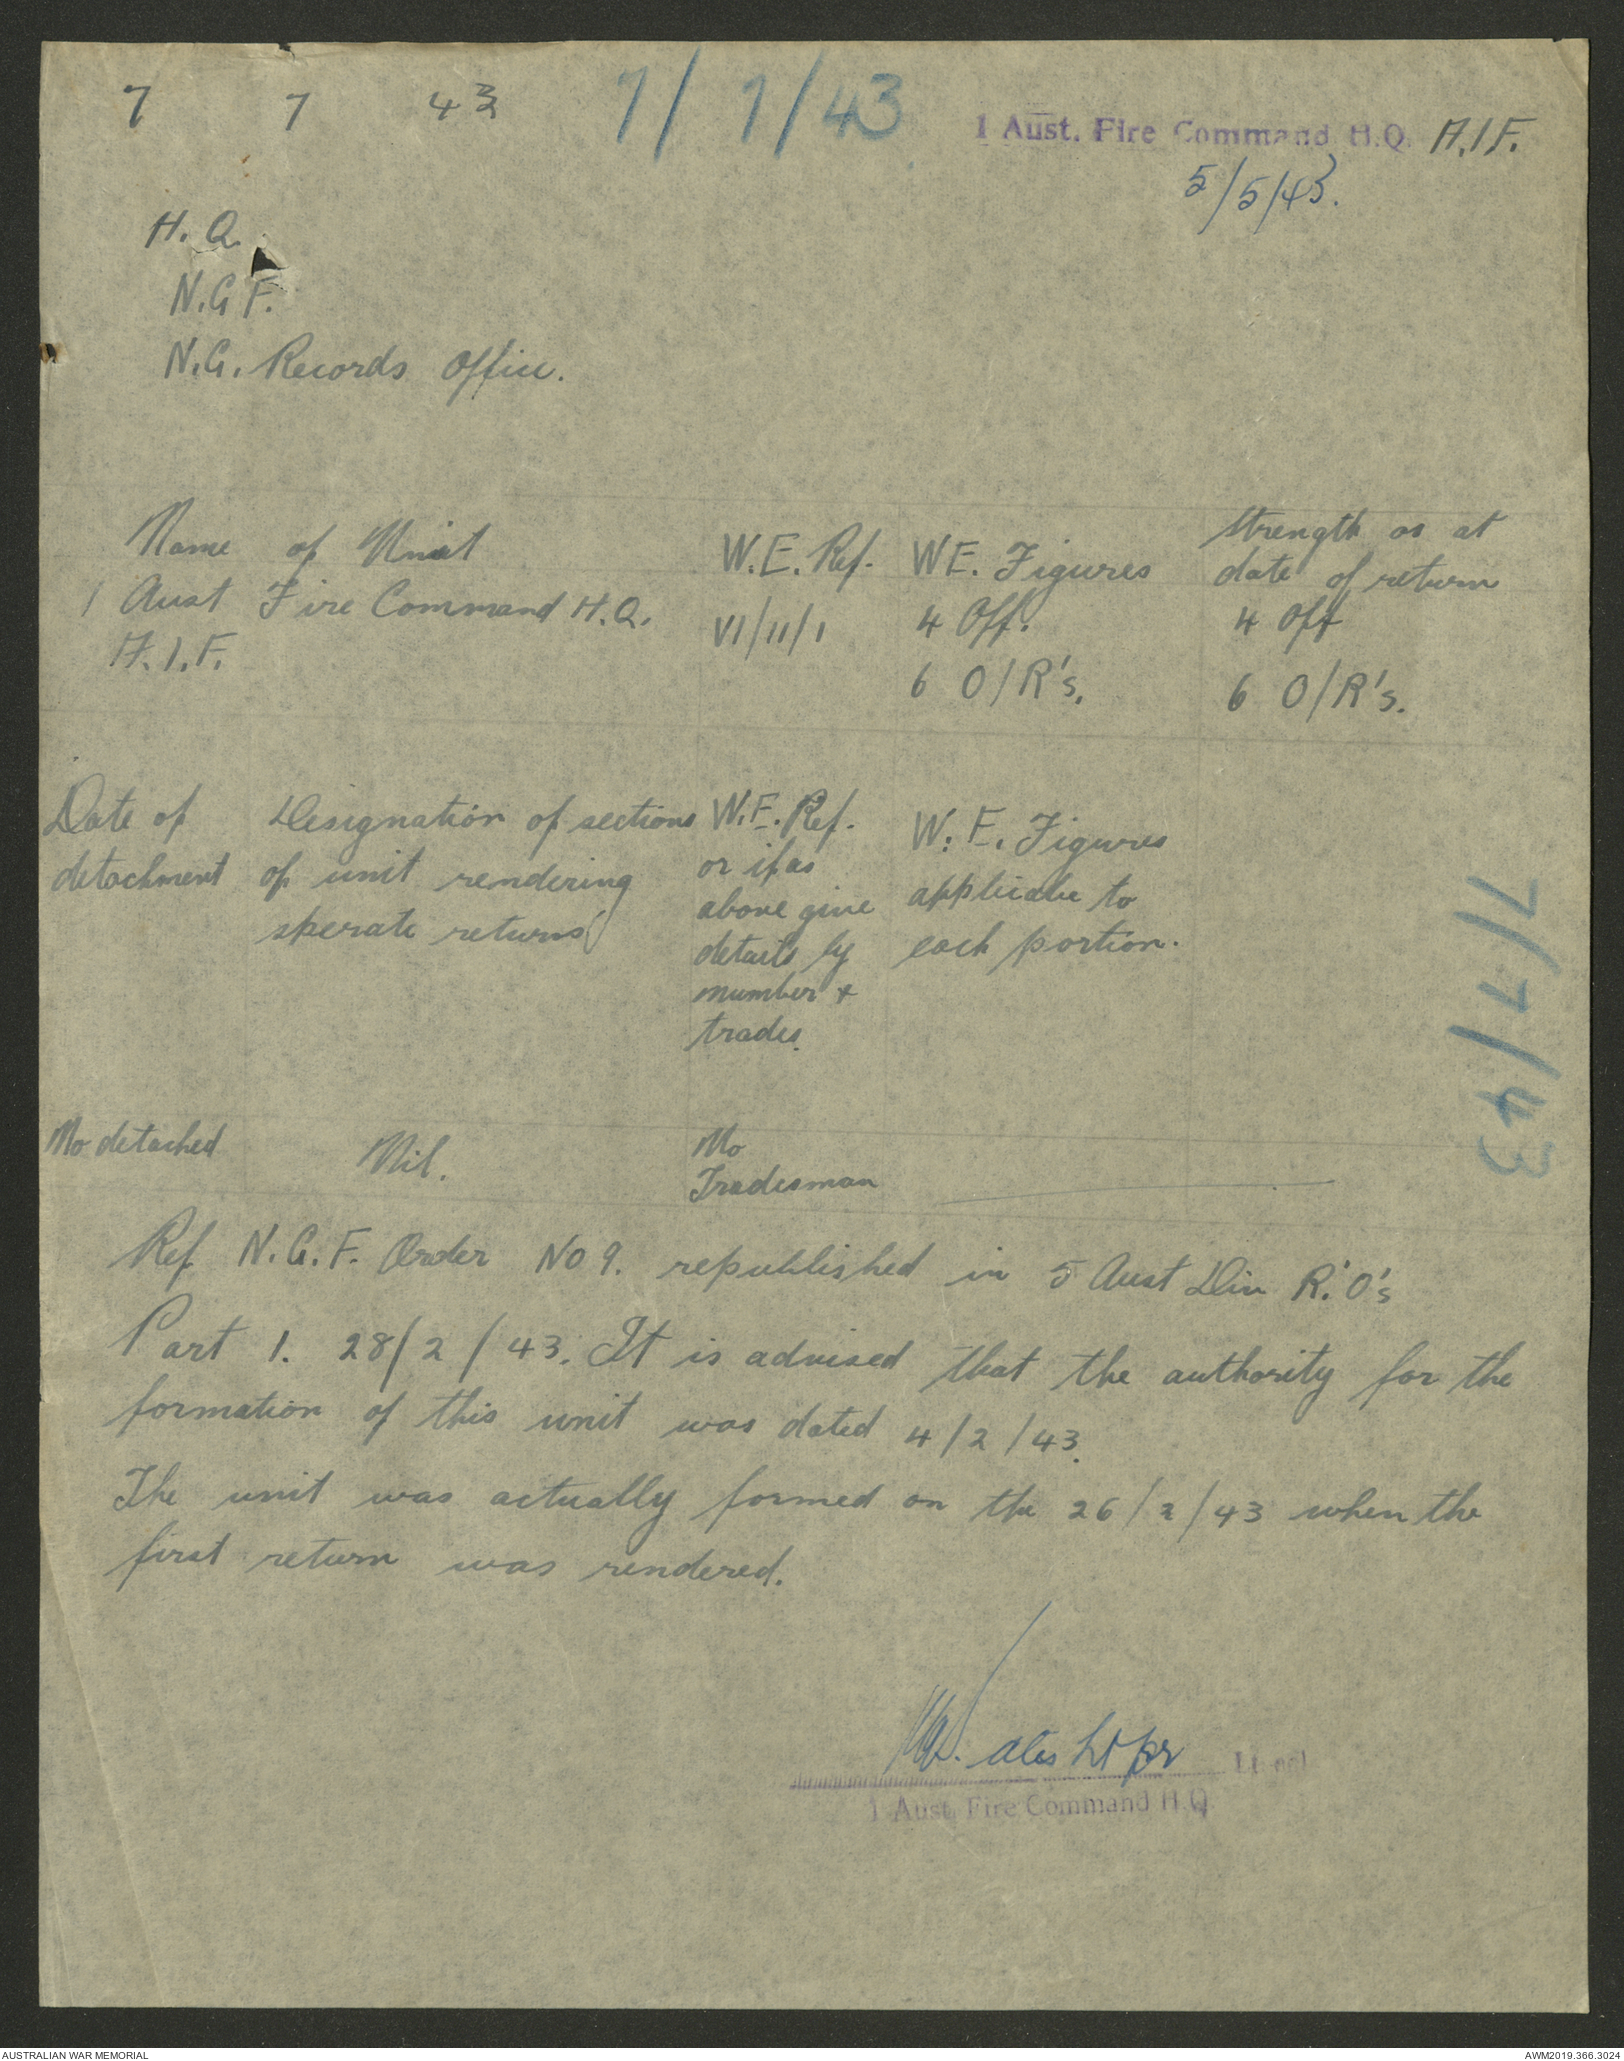 7 7 43 7/7/43 1 Aust. Fire Command H.Q. A.I.F.
5/5/43.
H. Q.
N.G F.
N.G. Records Office.
Name of Unit W.E. Ref. WE. Figures Strength as at
date of return
1 Aust Fire Command H.Q. VI/11/1 4 Off. 4 Off
A.I.F. 6 O/R's. 6 O/R's.
Date of Designation of sections W.E. Ref. W.E. Figures
detachment of unit rendering or if as applicable to
sperate returns above give each portion.
details by
number &
trades.
7/7/43
No detached Nil. No
Tradesman
Ref N.G.F. Order No 9. republished in 5 Aust Div R.O's
Part 1. 28/2/43. It is advised that the authority for the
formation of this unit was dated 4/2/43.
The unit was actually formed on the 26/2/43 when the
first return was rendered.
Lt pr Lt Col
1 Aust. Fire Command H.Q.
AUSTRALIAN WAR MEMORIAL AWM2019.366.3024